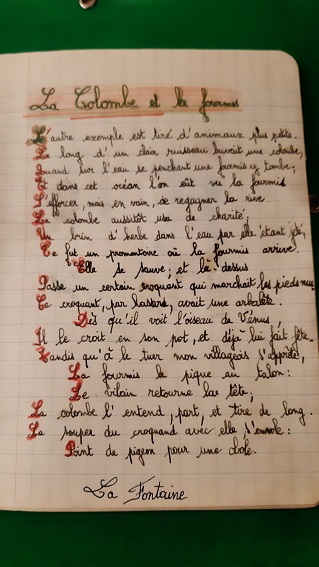 La Colombe et la fourmis
L'autre exemple est tiré d'animaux plus petits.
Le long d'un clair ruisseau buvait une colombe,
Quand sur l'eau se penchant une fourmis y tombe;
Et dans cet océan l'on eût vu la fourmis
S'efforcer, mais en vain, de regagner la rive.
La colombe aussitôt usa de charité;
Un brin d'herbe dans l'eau par elle étant jeté,
Ce fut un promontoire où la fourmis arrive.
Elle se sauve; et là dessus
Passe un certain croquant qui marchait les pieds nus.
Ce croquant, par hasard, avait une arbalète.
Dès qu'il voit l'oiseau de Vénus,
Il le croit en son pot, et déjà lui fait fête.
Tandis qu'à le tuer mon villageois s'apprête,
La fourmis le pique au talon:
Le vilain retourne la tête;
La colombe l'entend, part, et tire de long.
Le souper du croquand avec elle s'envole:
Point de pigeon pour une obole.
La Fontaine